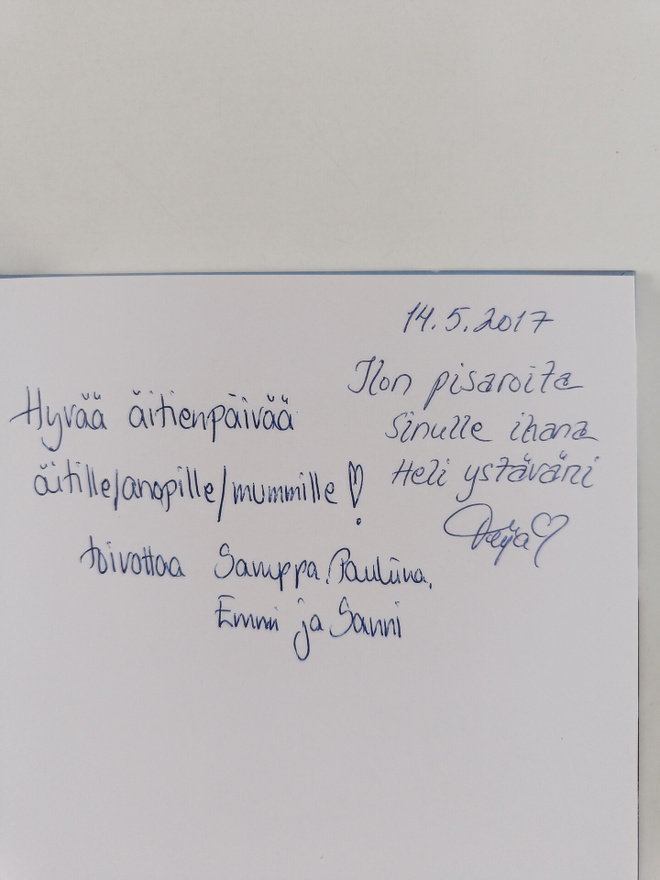 Hyvää äitienpäivää
äitille/anopille/mummille
toivottaa Samppa, Pauliina,
Emmi ja Sanni
14.5.2017
Ilon pisaroita
Sinulle ihana
Heli ystäväni